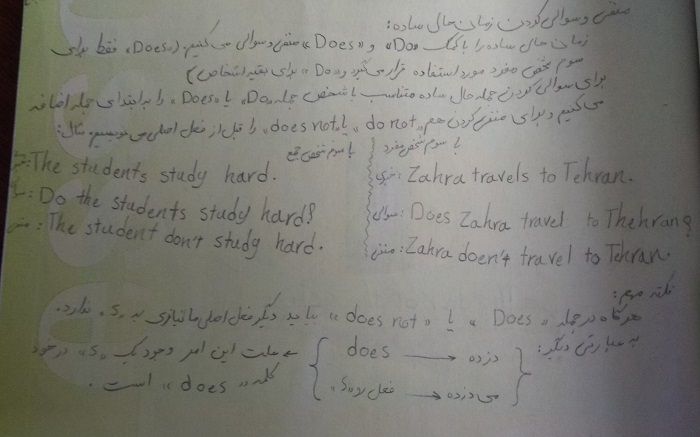 منفی و سوالی کردن زمان حال ساده:
زمان حال ساده را با کمک «Do» و «Does» منفی و سوالی می کنیم. («Does» فقط برای
سوم شخص مفرد مورد استفاده قرار می گیرد و «Do» برای بقیه اشخاص)
برای سوالی کردن جمله حال ساده متناسب با شخص جمله «Do» یا «Does» را به ابتدای جمله اضافه
می کنیم و برای منفی کردن هم «do not» یا «does not» را قبل از فعل اصلی می نویسیم. مثال:
با سوم شخص مفرد
خبری: Zahra travels to Tehran.
سوالی: Does Zahra travel to Thehran?
منفی: Zahra doen't travel to Tehran.
با سوم شخص جمع
The students study hard.
Do the students study hard?
منفی: The student don't study hard.
نکته مهم:
هرگاه در جمله «Does» یا «does not» بیاید دیگر فعل اصلی ما نیازی به «s» ندارد.
به عبارتی دیگر: دزده → does
می دزده → فعل رو «s»
علت این امر وجود یک «s» در خود
کلمه «does» است.